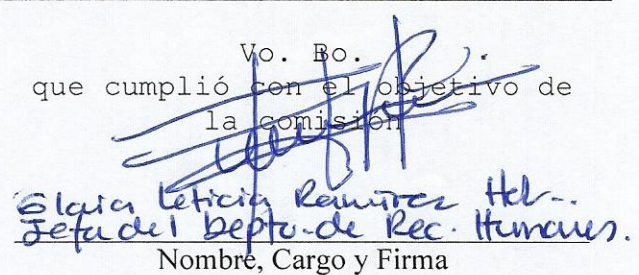 Vo. Bo.
que cumplió con el objetivo de
la comisión
Gloria Leticia Ramírez Hdz-.
Jefa del Depto. de Rec. Humanos.
Nombre, Cargo y Firma